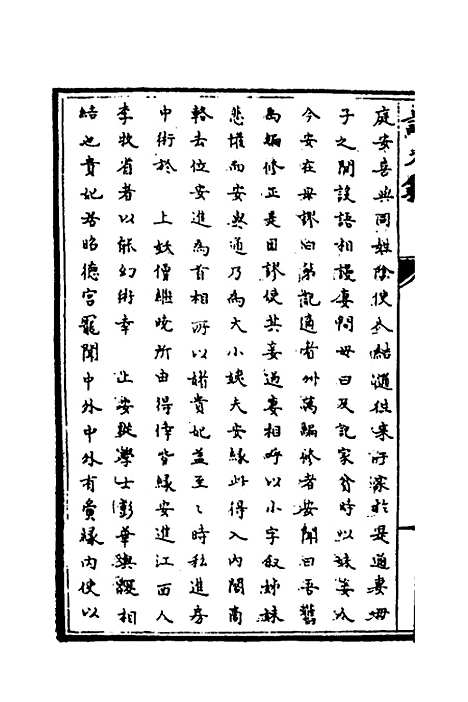 庭安喜與同姓除使人結通往來於深於是通妻毋
子之間設語相謾妻問毋曰及記家貧時以妹妾人
今安在毋謬曰第記適者州萬編修者安聞曰吾舊
為編修正是因謬使其妾過妻相呼以小字叙姊妹
悲懽而安與通乃為大小姨夫安緣此得入內閣商
輅去位安進為首相所以媚貴妃益至〻時私進房
中術於　上妖僧繼曉所由得倖皆緣安進江西人
李牧省者以能幻術幸　上安從學士彭華與綬相
結也貴妃居昭德宮寵聞中外中外有夤緣內使以